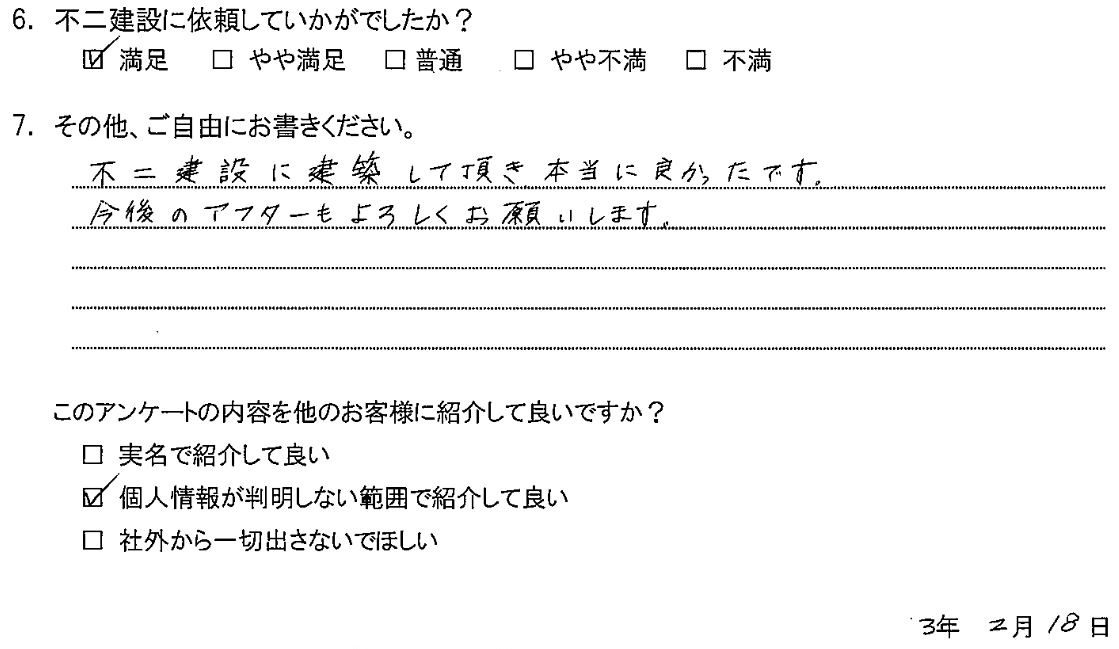 6. 不二建設に依頼していかがでしたか？
☑ 満足 □ やや満足 □ 普通 □ やや不満 □ 不満
7. その他、ご自由にお書きください。
不二建設に建築して頂き本当に良かったです。
今後のアフターもよろしくお願いします。
このアンケートの内容を他のお客様に紹介して良いですか？
□ 実名で紹介して良い
☑ 個人情報が判明しない範囲で紹介して良い
□ 社外から一切出さないでほしい
3年 2月 18日